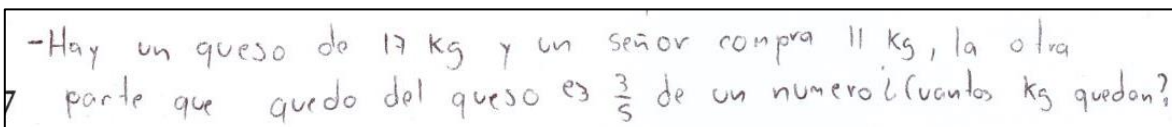 -Hay un queso de 17 kg y un señor compra 11 kg, la otra
parte que quedo del queso es 3/5 de un numero ¿Cuantos kg quedan?